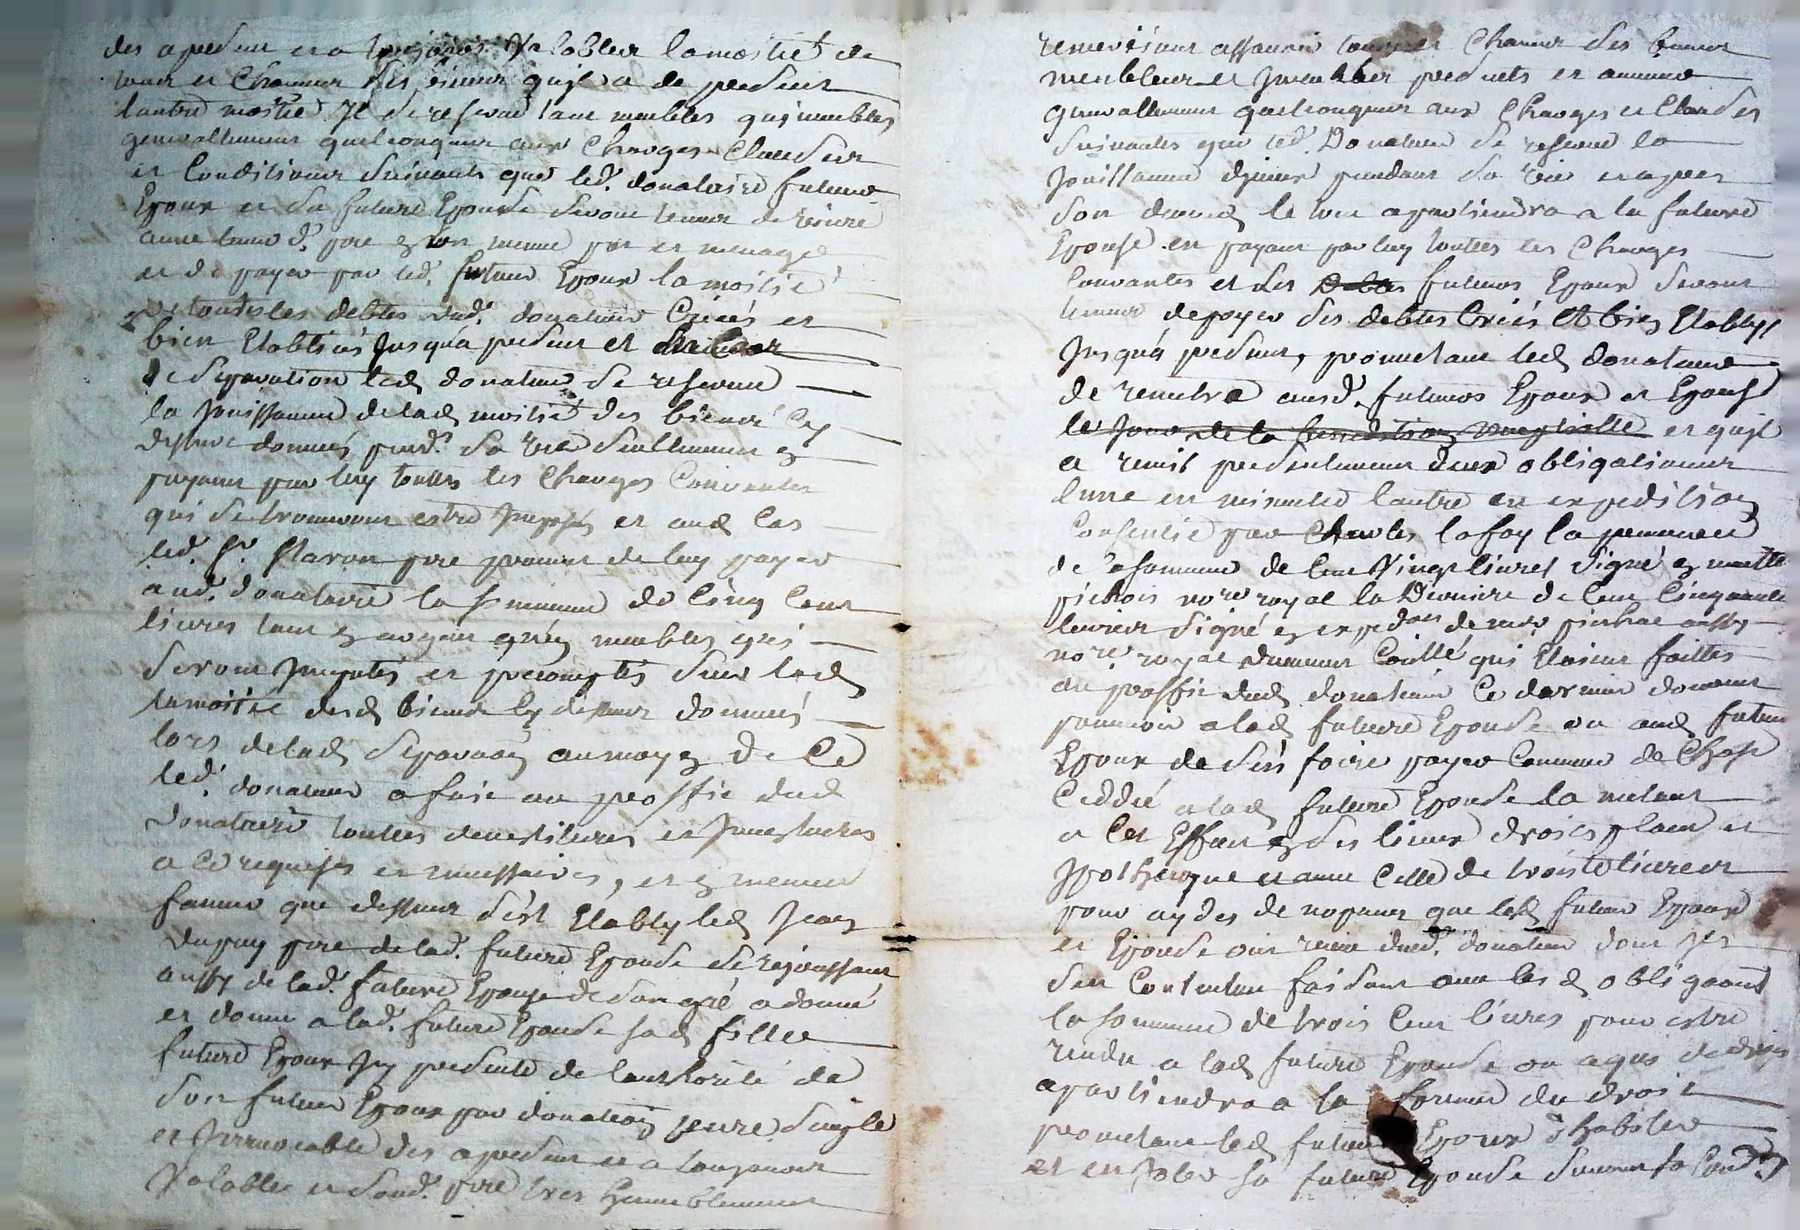 des a present et a toujours Valables la moitié de
tous et Chacuns des biens qu'il a de present
l'autre moitié Il se reserve tant meubles qu'immeubles
generallement quelconques aux Charges Clauses
et Conditions suivants que led. donataire futur
Epoux et sa future Epouse seront tenus de vivre
avec led. pere en son meme pot et menage
et de payer par led. futur Epoux la moitié
de toutes les debtes dud. donateur Créés et
bien Etablies Jusqu'à present et
de separation led. donateur se reserve
la Jouissance de lad. moitié des biens cy
dessus donnés pend. sa vie seullement en
payant par luy toutes les Charges Courantes
qui se trouveront estre Imposés et aud. cas
led. Sr. pere promet de luy payer
aud. donataire la somme de Cinq Cent
livres tant en argent qu'en meubles qui
seront Imputés et precomptés sur lad.
la moitié desd. biens Cy dessus donnés
lors de lad. separaon au moyen de Ce
led. donateur a fait au proffit dud.
donataire toutes devestitures et Investitures
a Ce requises et necessaires, et en meme
faveur que dessus s'est Etably led. Jean
Dupuy pere de lad. future Epouse
aussy de lad. future Epouse de son gré a donné
et donne a lad. future Epouse sad. fille
future Epoux Icy presente de l'authorité de
son futur Epoux par donation pure simple
et Irrevocable des a present et a toujours
Valables et sond. pere tres humblement
remerciant assavoir tous et Chacuns des biens
meubleux et Immeubles presents et avenir
generallement quelconques aux Charges et Clauses
suivantes que led. Donateur se reserve la
Jouissance d'iceux pendant sa vie et apres
son deces le tout apartiendra a la future
Epouse en payant par luy toutes les Charges
Courantes et les futurs Epoux seront
tenus de payer ses debtes Créés Et bien Etablys
Jusqu'à present, promettant led. donateur
de remetre ausd. futurs Epoux et Epouse
le Jour de la benediction nuptialle et qu'il
a remis presentement deux obligations
l'une en minutte l'autre en expedition
Consentie par Charles lafon la premiere
de la somme de Cent Vingt livres signé en minutte
pichois nore royal la Derniere de Cent Cinquante
livres signé en expedon de aussy
nore royal qui Etoient faittes
au proffit dud. donateur Ce dernier donnant
pouvoir a lad. future Epouse ou aud. futur
Epoux de s'en faire payer Comme de Chose
Ceddée a lad. future Epouse la metant
a Cet Effait en ses lieux droits place et
Ipotheque et avec Celle de trois livres
pour aydes de nopces que lesd. futurs Epoux
et Epouse ont receu dud. donateur dont
s'en Contentent faisant avec les d. obligaons
la somme de trois Cent livres pour estre
rendu a lad. future Epouse ou a qui de droit
apartiendra a la forme du droit
promettant led. futur Epoux d'habiter
et sa future Epouse suivant sa Condon